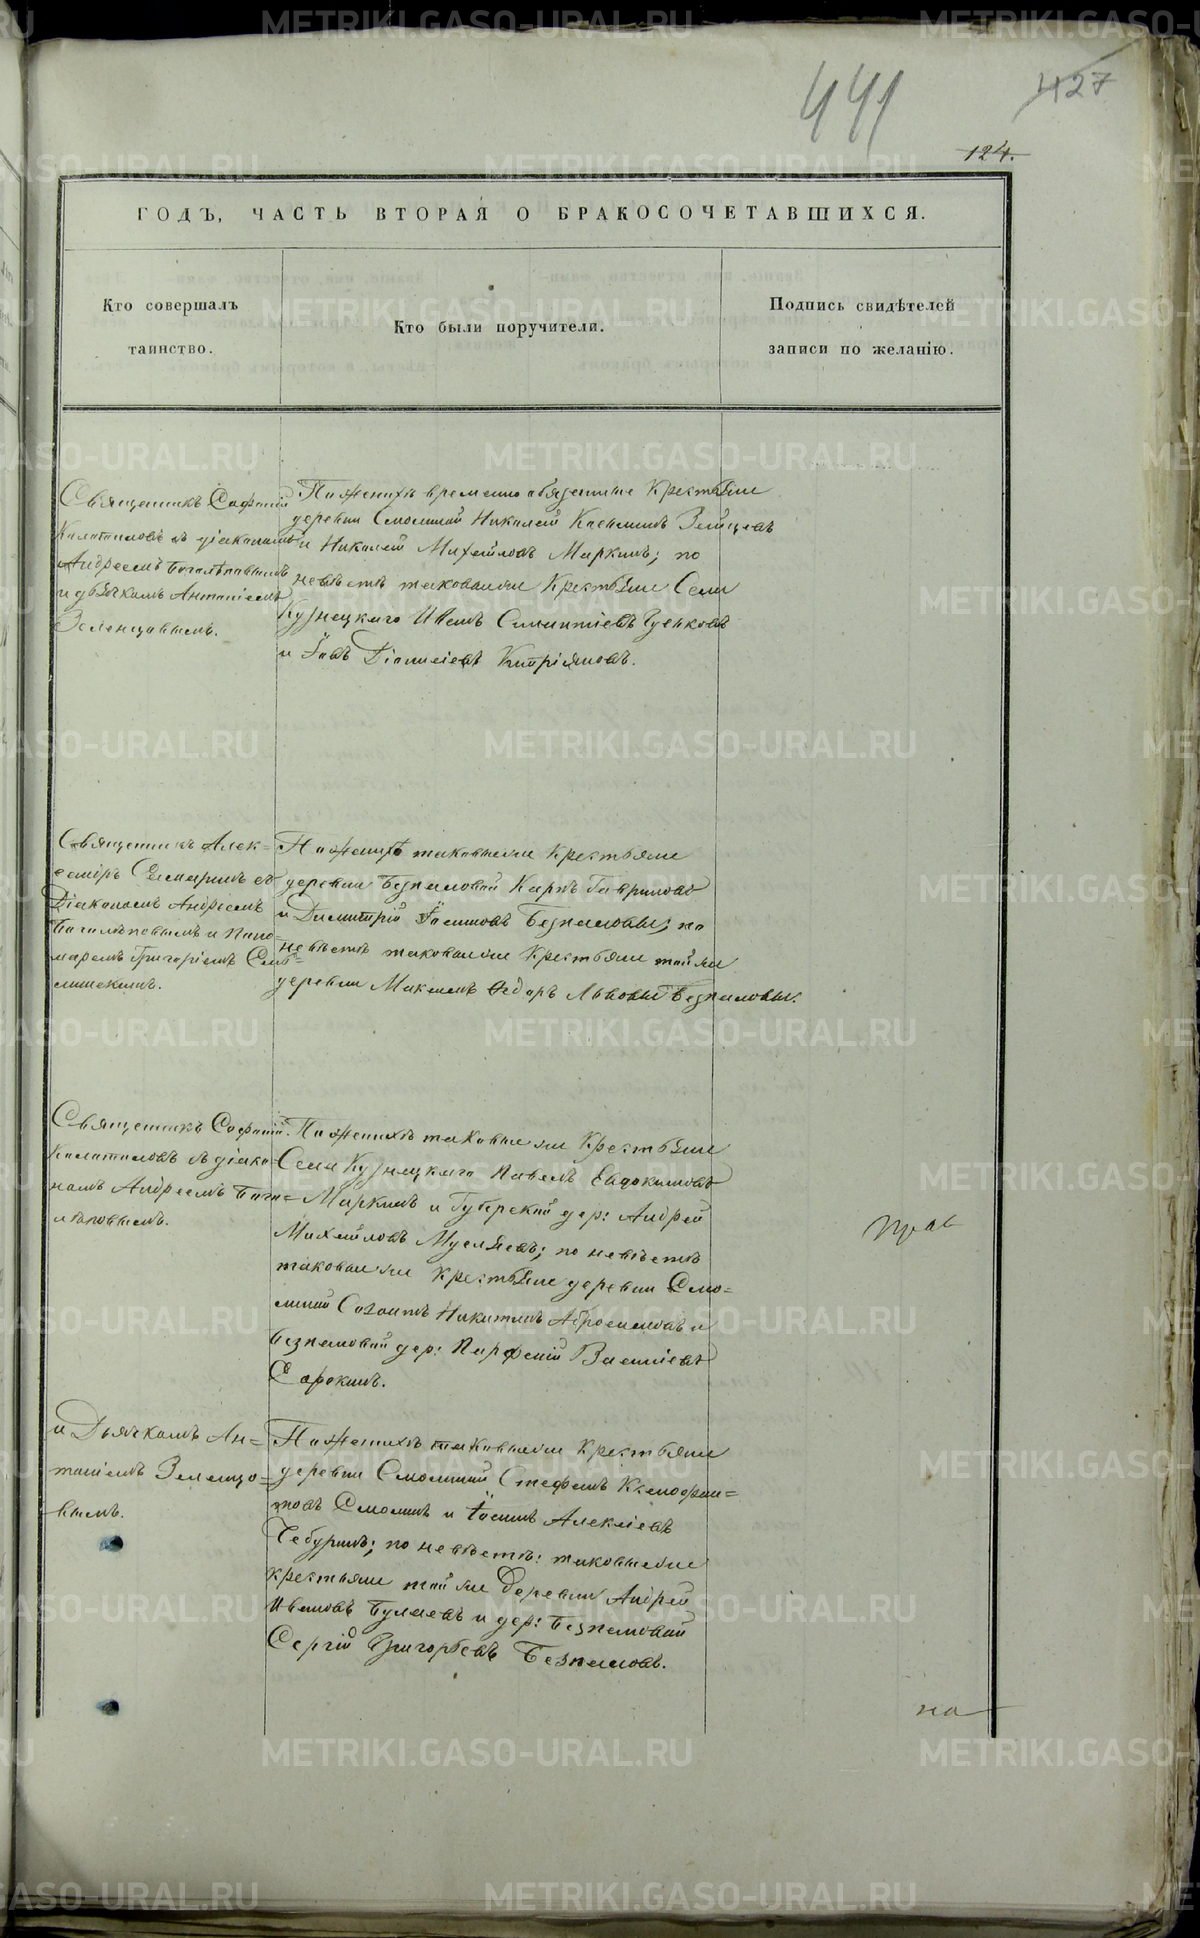 441
427
124.
ГОДЪ, ЧАСТЬ ВТОРАЯ О БРАКОСОЧЕТАВШИХСЯ.
Кто совершалъ
таинство.
Кто были поручители.
Подпись свидѣтелей
записи по желанію.
Священникъ
съ діакономъ
Андреемъ Боголѣповымъ
и дьячкомъ Антоніемъ
Зеленцовымъ.
По женихѣ временно обязенные Крестьяне
деревни Смолиной Николай
и Николай Михайловъ Маркинъ; по
невѣстѣ таковыеже Крестьяне Села
Кузнецкаго Иванъ
и Іовъ Діонисіевъ Кипріяновъ.
Священникъ Алек=
съ
Діакономъ Андреемъ
Боголѣповымъ и Поно=
маремъ Григоріемъ
По женихѣ таковыеже Крестьяне
деревни Безпаловой Карпъ Гавриловъ
и Димитрій Безпаловы; по
невѣстѣ таковыеже Крестьяне той же
деревни Максимъ Ѳедоръ Львовы Безпаловы.
Священникъ
съ діако=
номъ Андреемъ Бого=
лѣповымъ.
По женихѣ таковые же Крестьяне
Села Кузнецкаго Павелъ Евдокимовъ
Маркинъ и Губерской дер: Андрей
Михайловъ Мусляевъ; по невѣстѣ
таковые же Крестьяне деревни Смо=
линой Созонтъ Никитинъ Абросимовъ и
Безпаловой дер: Парфеній Василіевъ
Сорокинъ.
и Дьячкомъ Ан=
тоніемъ Зеленцо=
вымъ.
По женихѣ таковыеже Крестьяне
деревни Смолиной Стефанъ Ксенофон=
товъ Смолинъ и Іосифъ Алексіевъ
Чебуринъ; по невѣстѣ: таковыеже
крестьяне той же Деревни Андрей
Ивановъ Булаевъ и дер: Безпаловой
Сергій Григорьевъ Безпаловъ.
на
METRIKI.GASO-URAL.RU